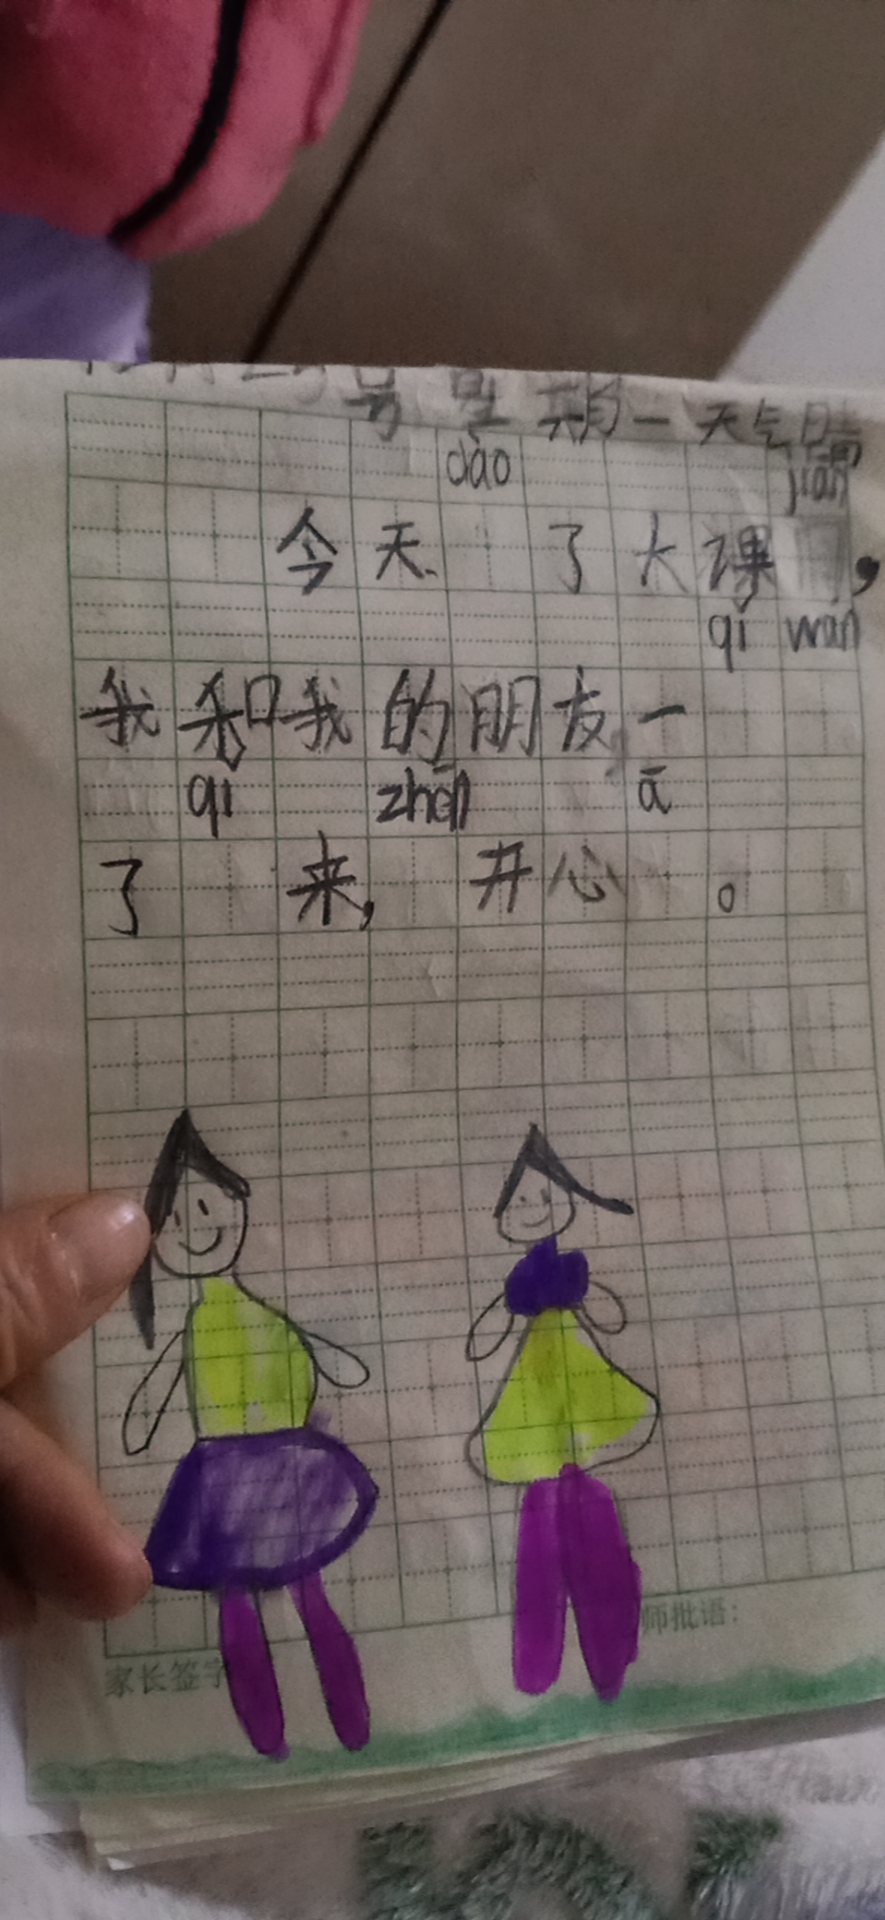 号星期一天气晴
dào jiān
今天 了大课 ，
qi wán
我和我的朋友一
qǐ zhēn ā
了 来， 开心 。
家长签字
师批语：